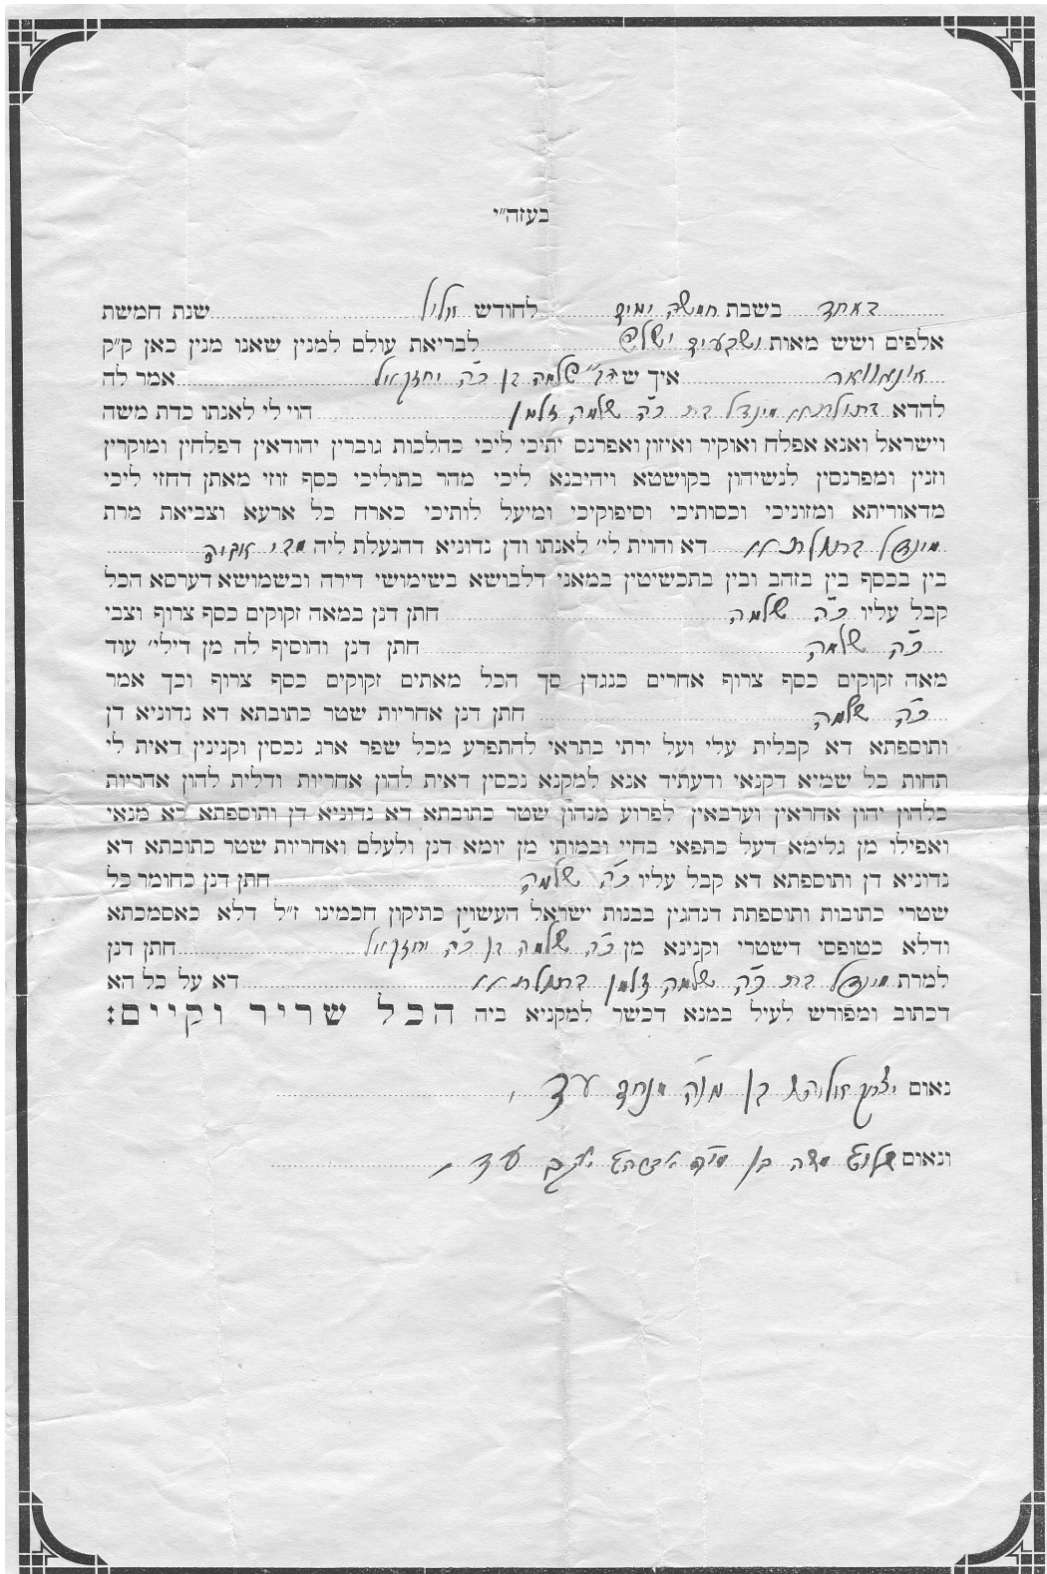 בעזה״י
באחד בשבת חמשה ימים לחודש אלול שנת חמשת
אלפים ושש מאות ושבעים ושלש לבריאת עולם למנין שאנו מנין כאן ק״ק
איך ש שלמה בן כ״ה יחזקאל אמר לה
להדא בתולתא מינדל בת כ״ה שלמה זלמן הוי לי לאנתו כדת משה
וישראל ואנא אפלח ואוקיר ואיזון ואפרנס יתיכי ליכי כהלכות גוברין יהודאין דפלחין ומוקרין
וזנין ומפרנסין לנשיהון בקושטא ויהיבנא ליכי מהר בתוליכי כסף זוזי מאתן דחזי ליכי
מדאוריתא ומזוניכי וכסותיכי וסיפוקיכי ומיעל לותיכי כארח כל ארעא וצביאת מרת
מינדל בתולתא דא והוית לי׳ לאנתו ודן נדוניא דהנעלת ליה מבי אביה
בין בכסף בין בזהב ובין בתכשיטין במאני דלבושא בשימושי דירה ובשמושא דערסא הכל
קבל עליו כ״ה שלמה חתן דנן במאה זקוקים כסף צרוף וצבי
כ״ה שלמה חתן דנן והוסיף לה מן דילי׳ עוד
מאה זקוקים כסף צרוף אחרים כנגדן סך הכל מאתים זקוקים כסף צרוף וכך אמר
כ״ה שלמה חתן דנן אחריות שטר כתובתא דא נדוניא דן
ותוספתא דא קבלית עלי ועל ירתי בתראי להתפרע מכל שפר ארג נכסין וקנינין דאית לי
תחות כל שמיא דקנאי ודעתיד אנא למקנא נכסין דאית להון אחריות ודלית להון אחריות
כלהון יהון אחראין וערבאין לפרוע מנהון שטר כתובתא דא נדוניא דן ותוספתא דא מנאי
ואפילו מן גלימא דעל כתפאי בחיי ובמותי מן יומא דנן ולעלם ואחריות שטר כתובתא דא
נדוניא דן ותוספתא דא קבל עליו כ״ה שלמה חתן דנן כחומר כל
שטרי כתובות ותוספתת דנהגין בבנות ישראל העשוין כתיקון חכמינו ז״ל דלא כאסמכתא
ודלא כטופסי דשטרי וקנינא מן כ״ה שלמה בן כ״ה יחזקאל חתן דנן
למרת מינדל בת כ״ה שלמה זלמן בתולתא דא על כל הא
דכתוב ומפורש לעיל במנא דכשר למקניא ביה הכל שריר וקיים:
נאום יצחק בן מו״ה עד
ונאום משה בן מו״ה יעקב עד